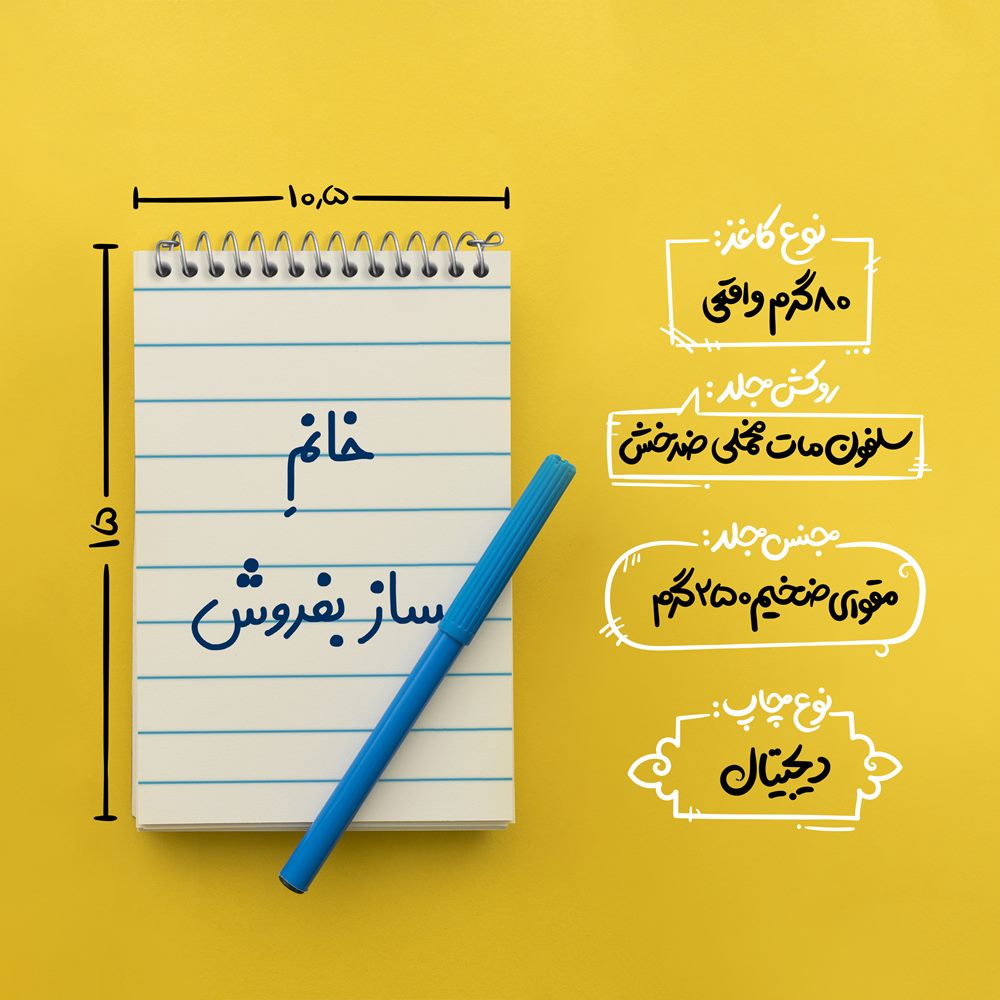 ۱۰٫۵
۱۵
خانمِ
بساز بفروش
نوع کاغذ:
۸۰ گرم واقعی
روکش جلد:
سلفون مات مخملی ضدخش
جنس جلد:
مقوای ضخیم ۲۵۰ گرم
نوع چاپ:
دیجیتال